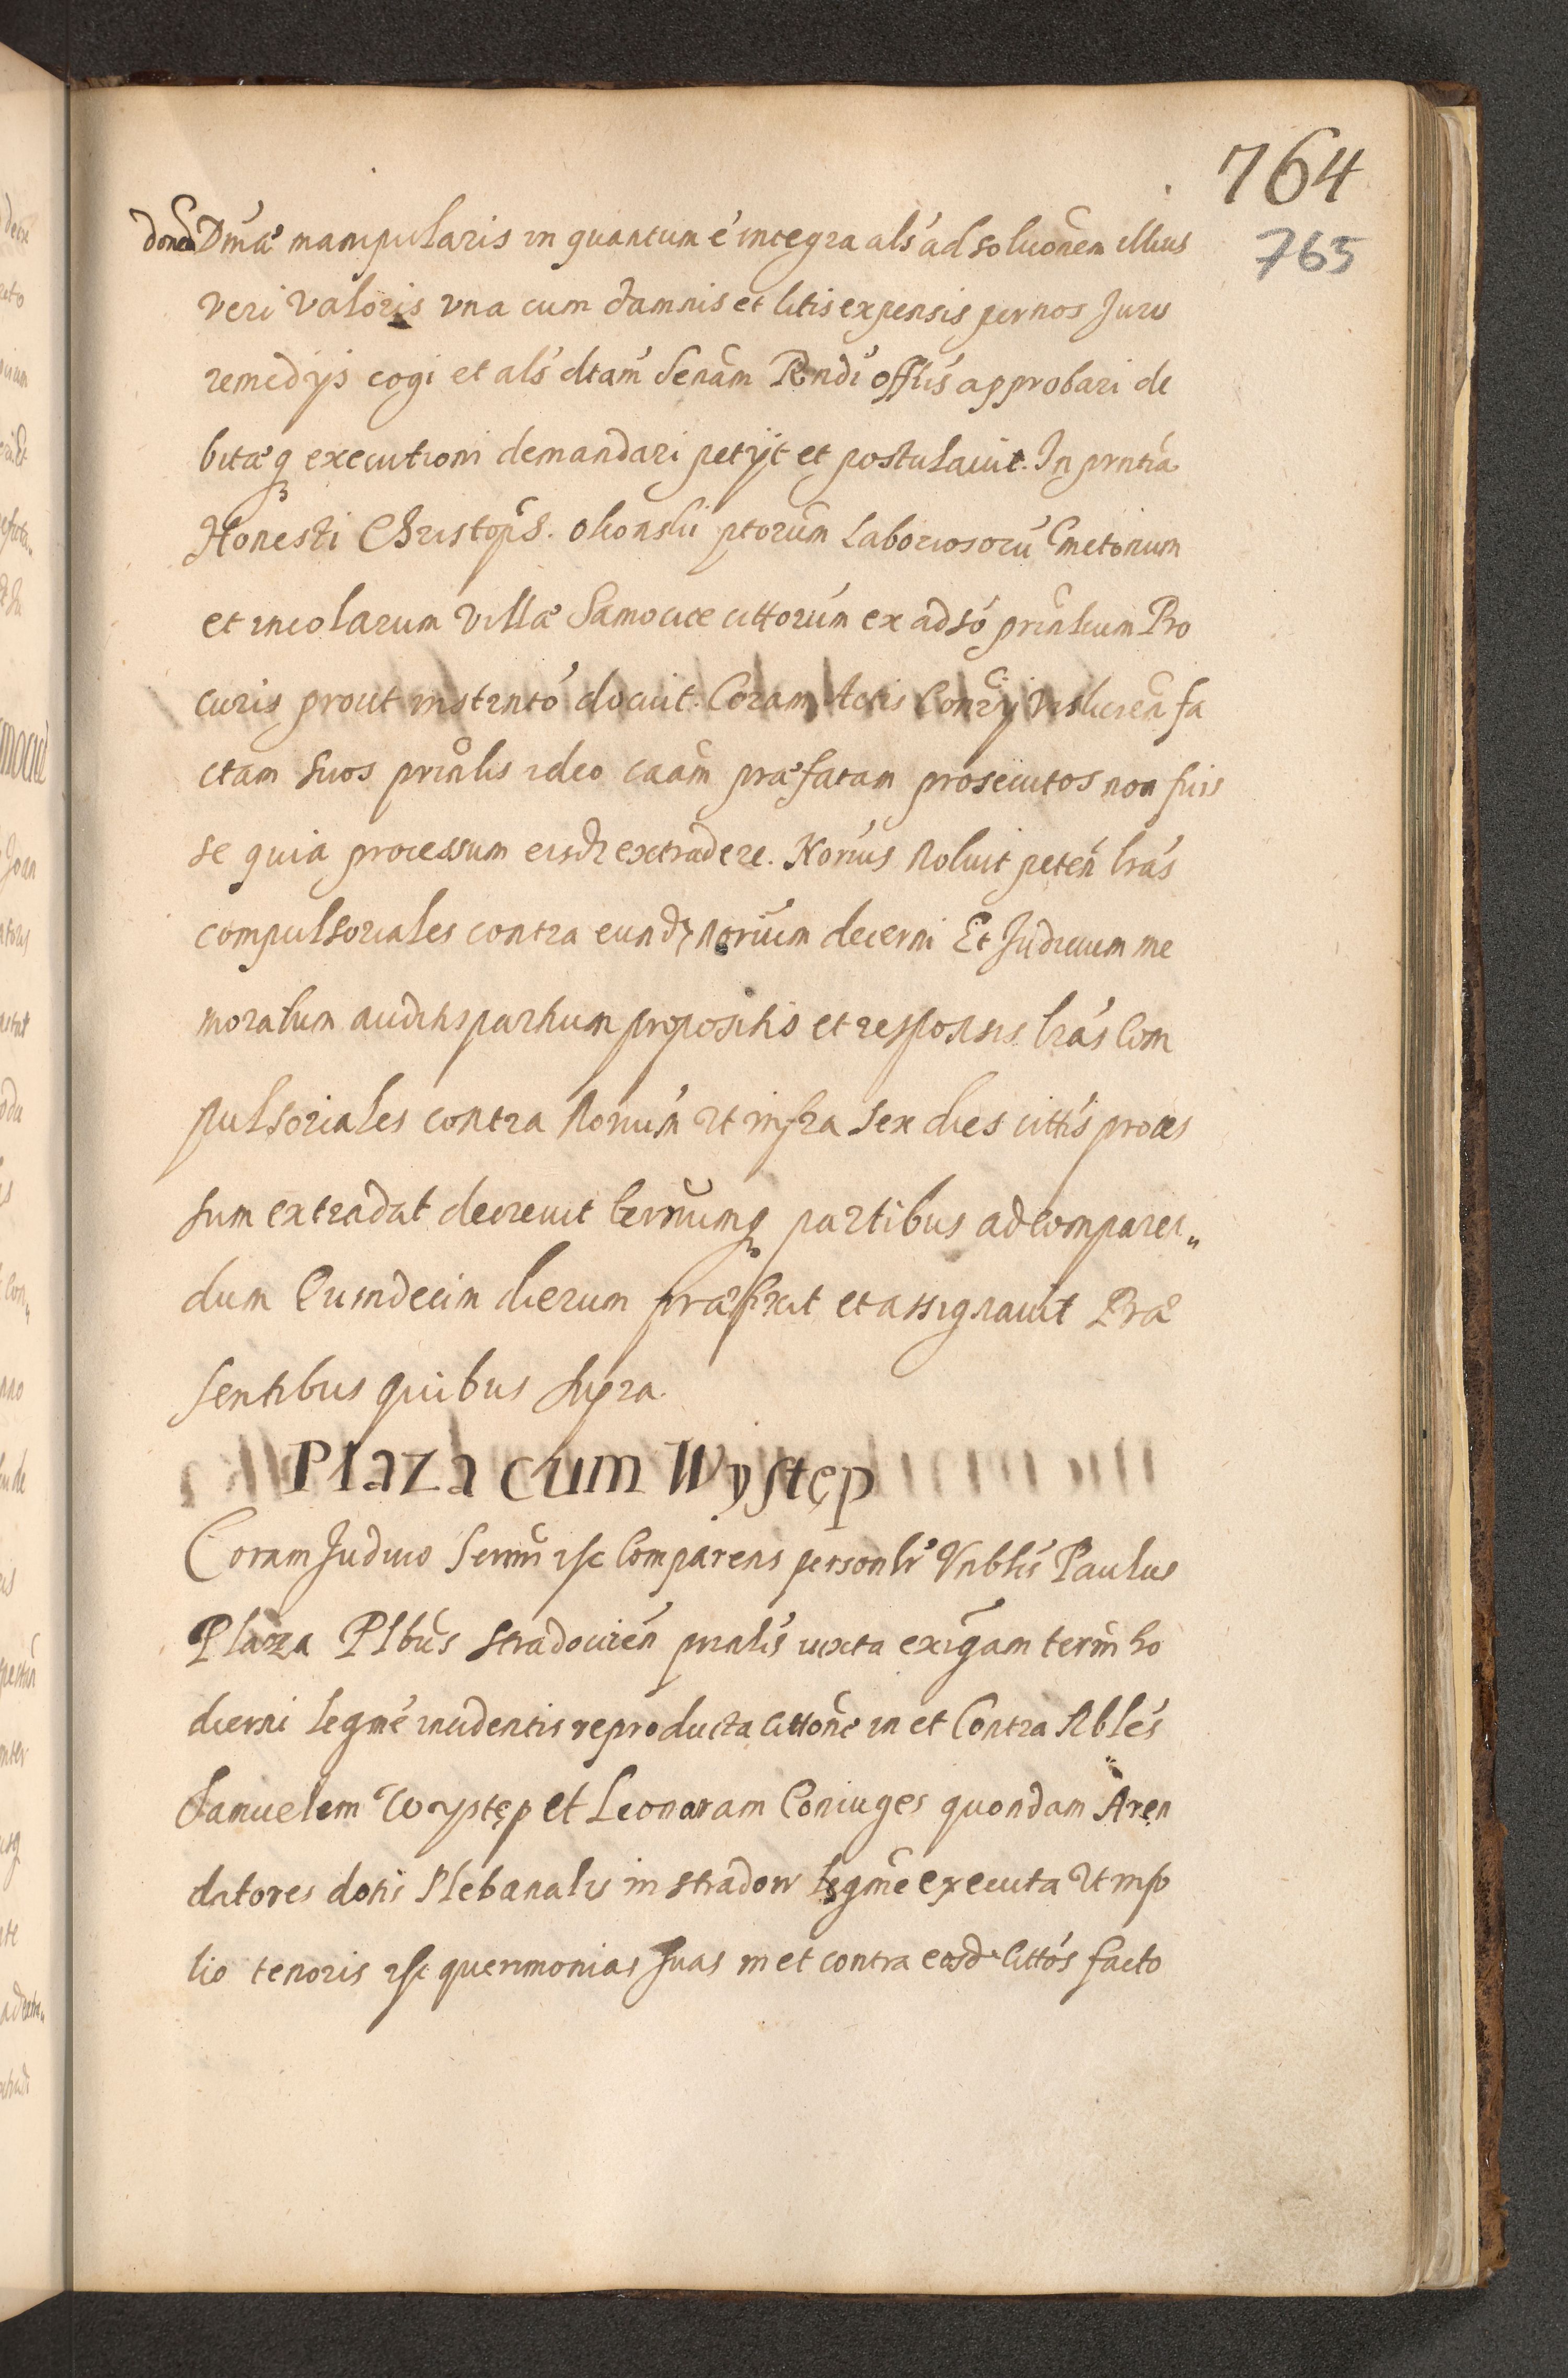 764
765
donec Dmæ manipularis in quantum é integra als ad soluonem illius
veri valoris vna cum damnis et litis expensis per nos Juris
remedijs cogi et als dtam Senam Rndi offlis approbari de
bitæq executioni demandari petijt et postulauit. In prntia
Honesti Christoph. okonskii ptorum Laboriosorū Cmetonum
et incolarum Villæ Samocice cittorum ex adso prinlium Pro
curis prout instrnto docuit. Coram Actis Conrij Vislicien fa
ctam suos prinlis ideo caam præfatam prosecutos non fuis
se quia processum eisd extradere. Norius noluit peten lras
compulsoriales contra eund norium decerni Et Judicium me
moratum auditis partium propositis et responsis lras Com
pulsoriales contra norium ut infra sex dies cittis proces
sum extradat decreuit terminumq partibus ad comparen„
dum Quindecim dierum præfixit et assignauit Præ
sentibus quibus supra.
Plaza cum Występ
Coram Judicio Serm etc Comparens personlr Vnblis Paulus
Plazza Plbus Stradouien prinlis iuxta exigam term ho
dierni legme incidentis reproducta cittone in et Contra Nbles
Samuelem Występ et Leonoram Coniuges quondam Aren
datores dotis Plebanalis in Stradow legme executa Ut in p
lio tenoris etc querimonias suas in et contra eosd cittos facto